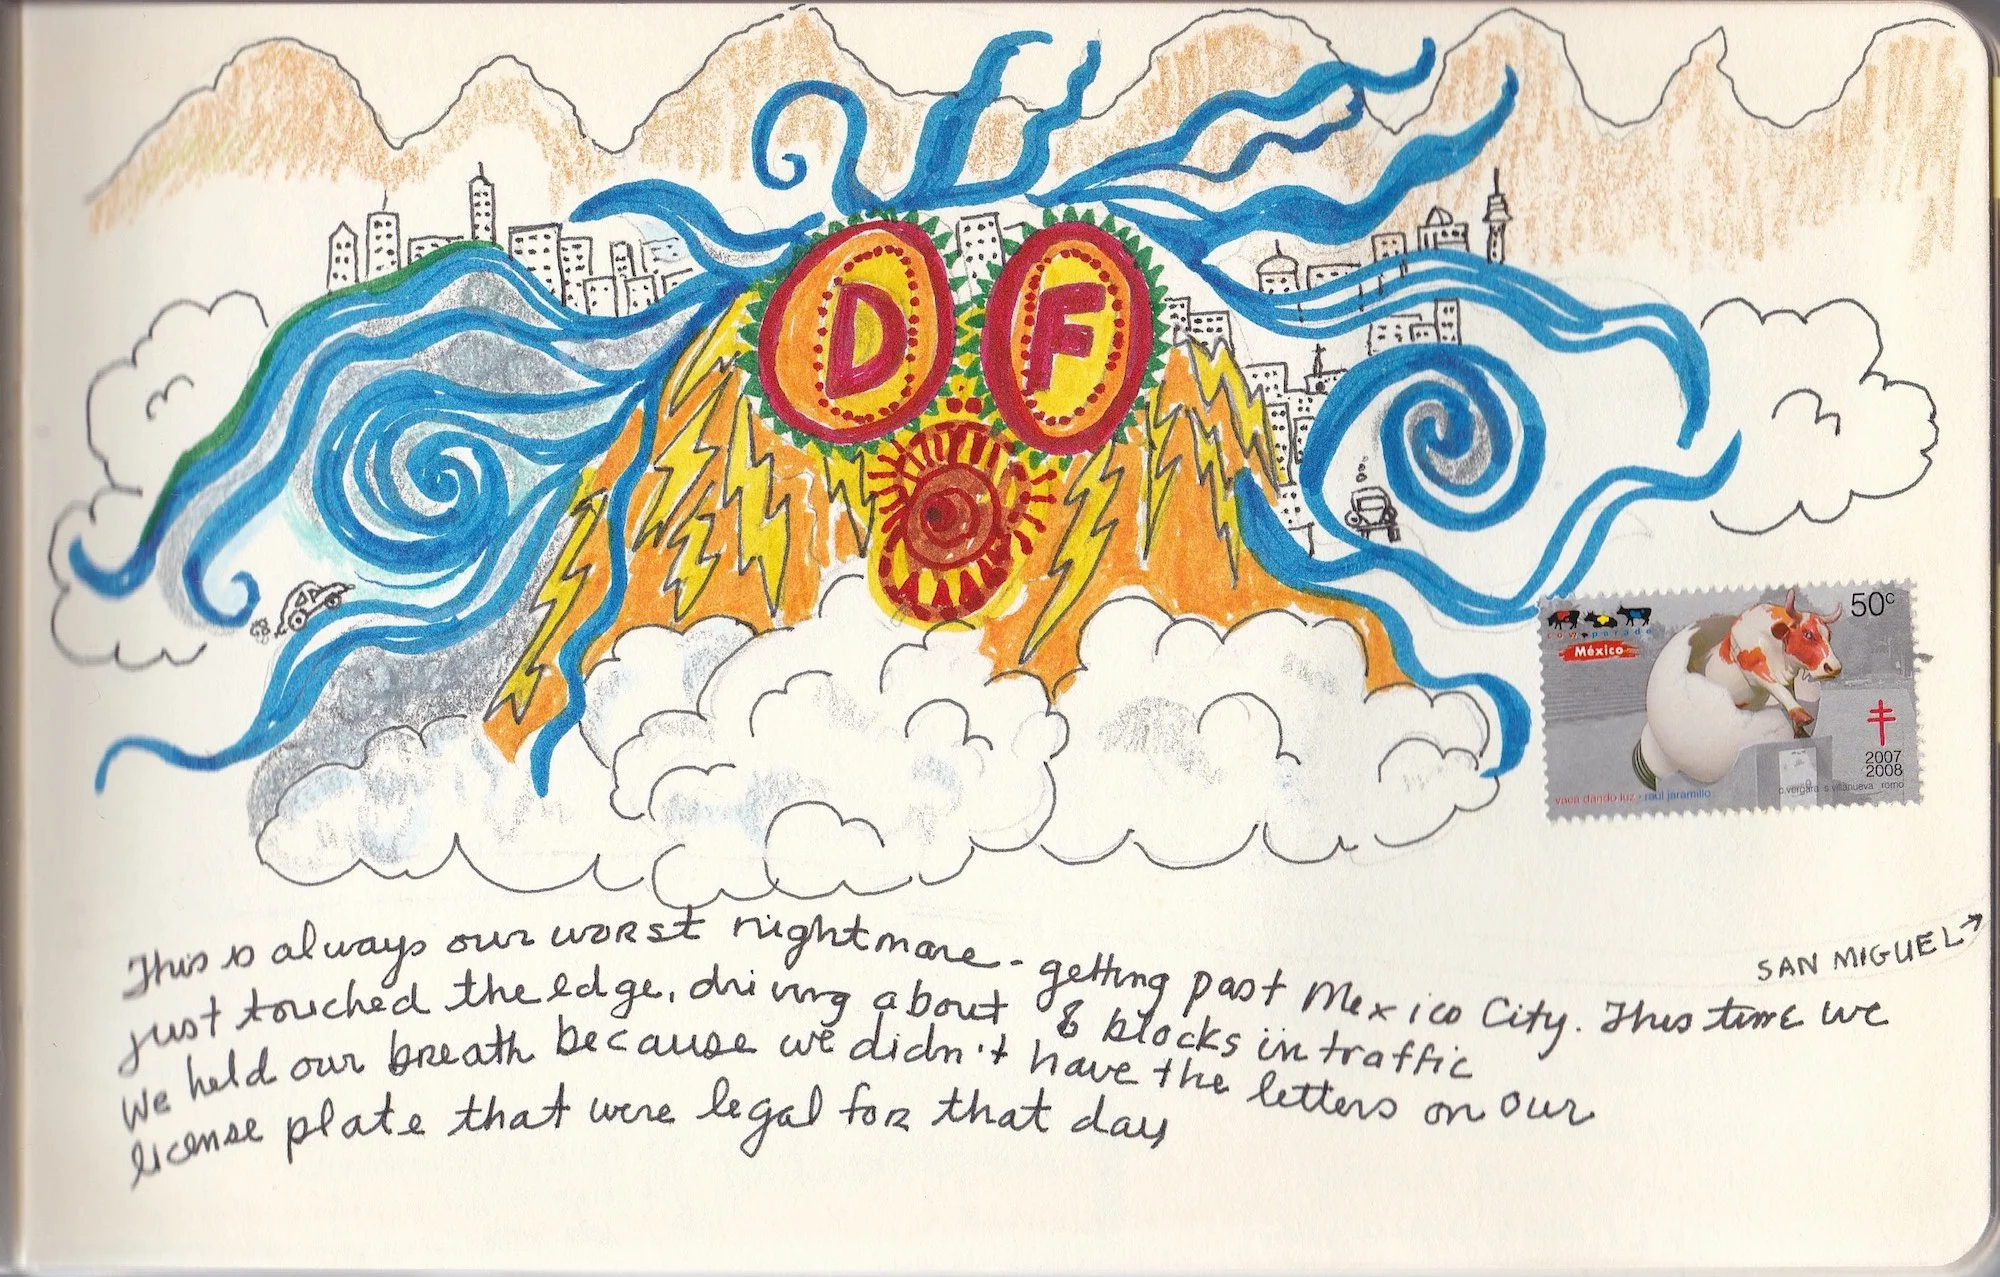 D F
cow parade
México
50c
2007
2008
vaca dando luz • raul jaramillo
c.vergara s.villanueva romo
SAN MIGUEL
This is always our worst nightmare - getting past Mexico City. This time we
just touched the edge, driving about 8 blocks in traffic
We held our breath because we didn't have the letters on our
license plate that were legal for that day